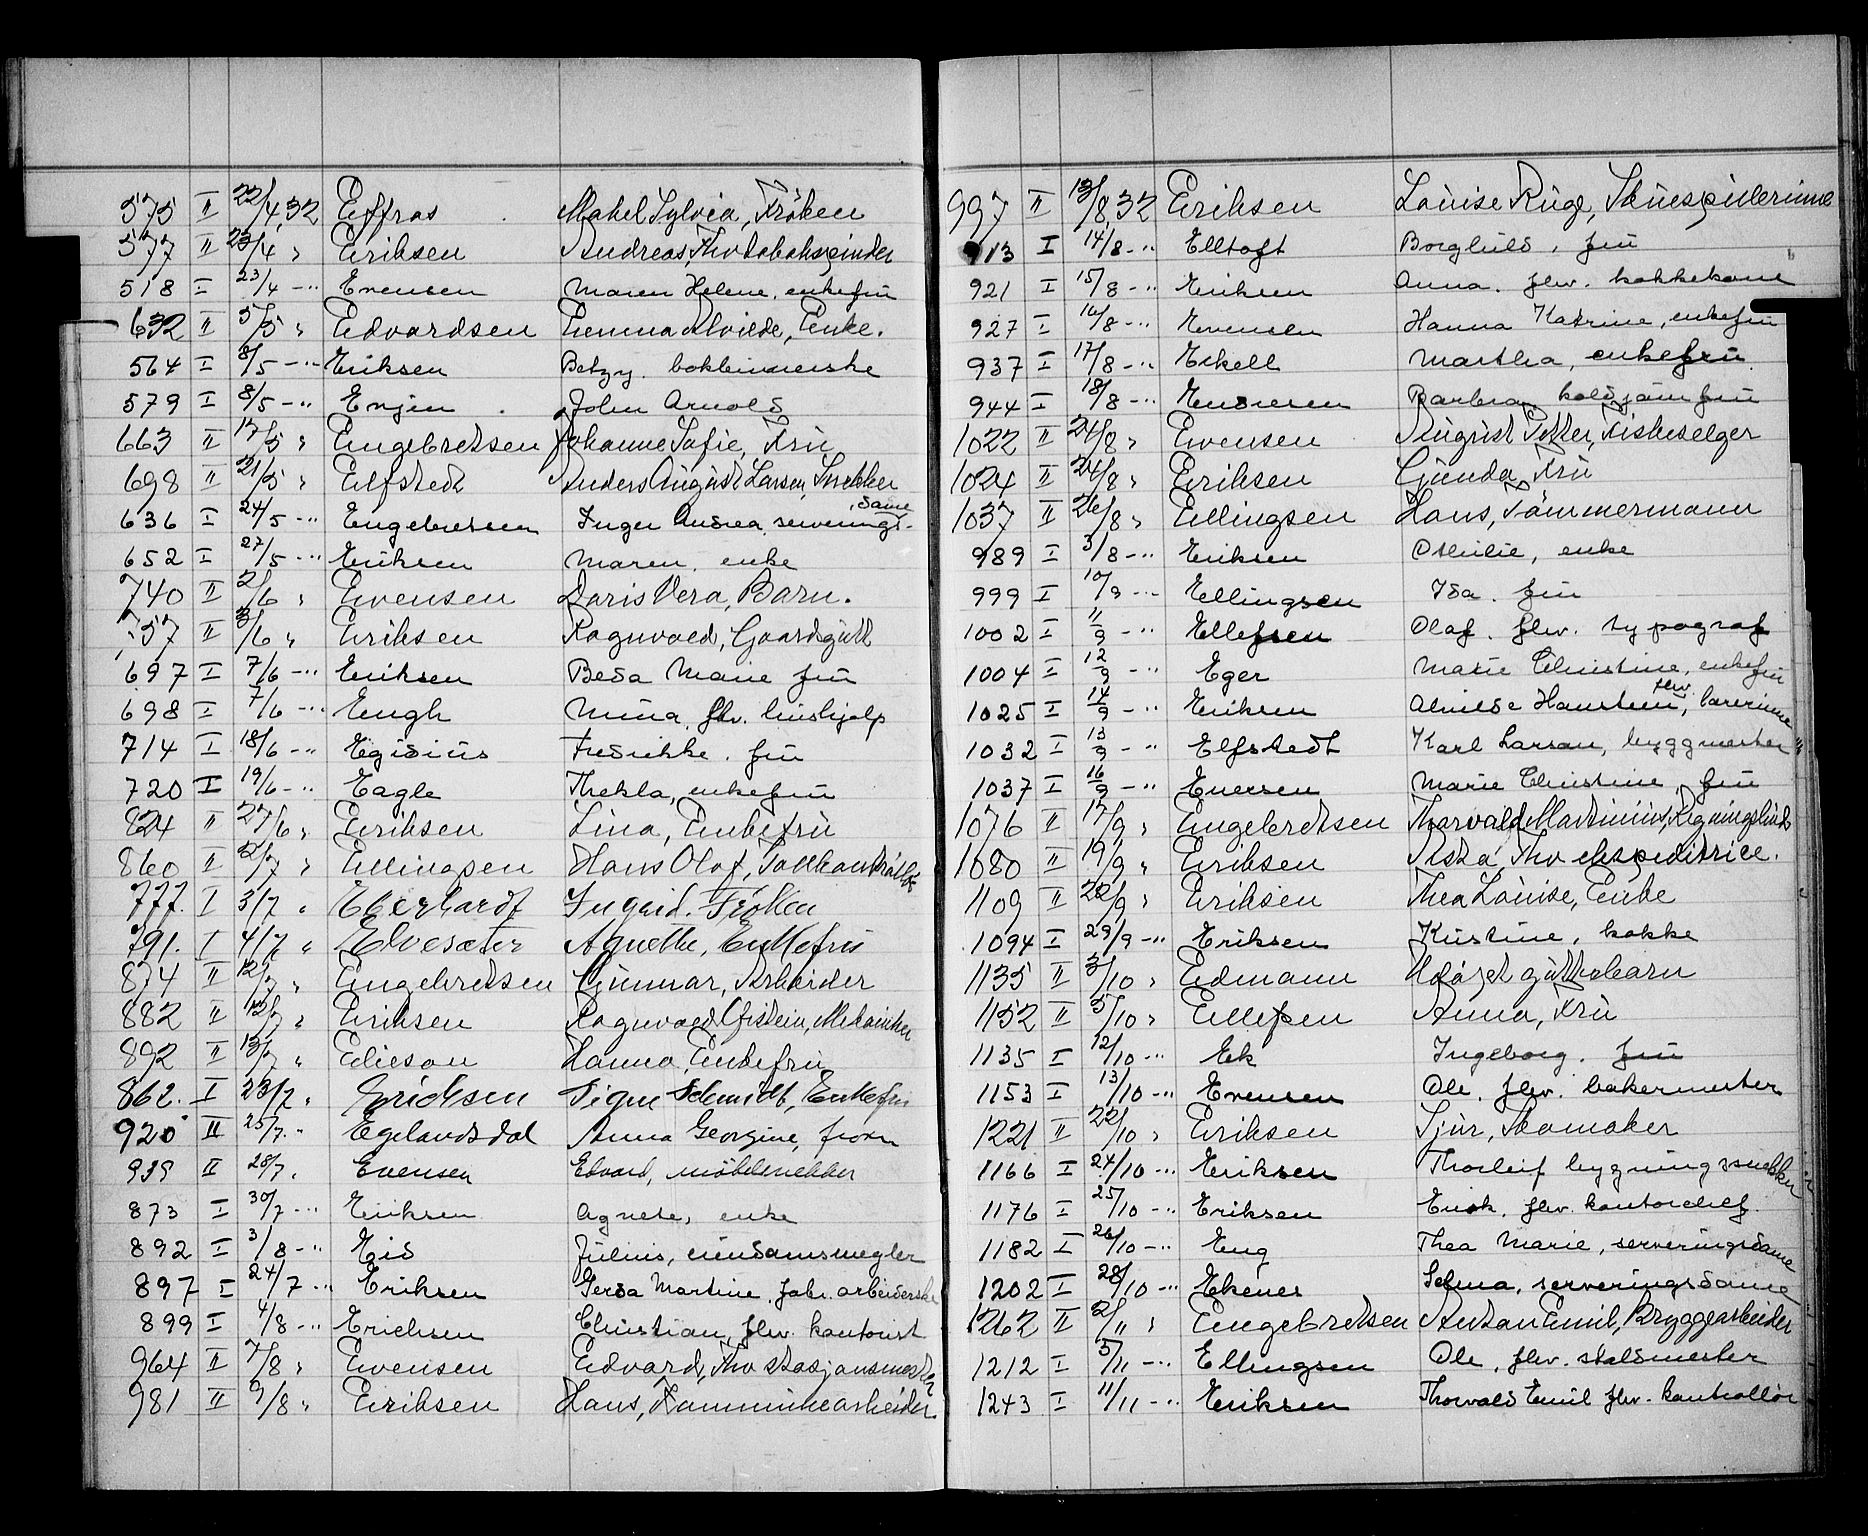 575 II 22/4 32 Effros Mabel Sylvia, Frøken
577 II 23/4 " Eriksen Andreas, Fhv tobakspinder
518 I 23/4 -" Evensen Maren Helene, enkefru
632 II 5/5 " Edvardsen Emma Alvilde, Enke.
564 I 8/5 -" Eriksen Betzy. bokbinnerske
579 I 8/5 -" Enjen John Arnold
663 II 17/5 " Engebretsen Johanne Sofie, Fru
698 II 21/5 " Elfstedt Anders August Larsen, Snekker
636 I 24/5 -" Engebretsen Inger Andrea, serverings-dame
652 I 27/5 -" Eriksen Maren, enke
740 II 2/6 " Evensen Doris Vera, Barn.
757 II 3/6 " Eriksen Ragnvald, Gaardsgutt
697 I 7/6 -" Eriksen Beda Marie fru
698 I 7/6 -" Engh Nina, fhv. hushjelp
714 I 18/6 -" Egidius Fredrikke. fru
720 I 19/6 -" Eagle Thekla, enkefru
824 II 27/6 " Eriksen Lina, Enkefru
860 II 2/7 " Ellingsen Hans Olof, Tollkontrollør
777. I 3/7 " Eberhardt Ingrid. Frøken
791. I 4/7 " Elvesæter Agnethe, Enkefru
874 II 12/7 " Engebretsen Gunnar, Arbeider
882 II 12/7 " Eriksen Ragnvald Øistein, Mekaniker
892 II 13/7 " Elieson Hanna, Enkefru
862. I 23/7 " Erichsen Signe Schmidt, Enkefru
920 II 25/7 " Egelandsdal Anna Georgine, frøken
939 II 28/7 " Evensen Edvard, møbelsnekker
873 I 30/7 -" Eriksen Agnete, enke
892 I 3/8 -" Eid Julius, eiendomsmegler
897 I 24/7 -" Eriksen Gerda Martine, fabr. arbeiderske
899 I 4/8 -" Erichsen Christian, fhv. kontorist
964 II 7/8 " Evensen Edvard, Fhv stasjonsmester
981 II 9/8 " Eriksen Hans, Kommunearbeider
997 II 13/8 32 Eriksen Louise Ruge, Skuespillerinne
913 I 14/8 -" Elltoft Borghild, fru
921 I 15/8 -" Eriksen Anna. fhv. kokkekone
927 I 16/8 -" Evensen Hanna Katrine, enkefru
937 I 17/8 -" Eskell Martha, enkefru
944 I 18/8 -" Endresen Barbra, fru
1022 II 24/8 " Evensen August Petter, Fiskeselger
1024 II 24/8 " Eriksen Gunda, Fru
1037 II 26/8 " Ellingsen Hans, Tømmermann
989 I 3/8 -" Eriksen Othilie, enke
999 I 10/9 -" Ellingsen Ida. fru
1002 I 11/9 -" Ellefsen Olaf. fhv. typograf
1004 I 12/9 -" Eger Marie Christine, enkefru
1025 I 14/9 -" Eriksen Alvilde Hansteen, fhv. lærerinne
1032 I 13/9 -" Elfstedt Karl Larsen, byggmester
1037 I 16/9 -" Eversen Marie Christine, fru
1076 II 17/9 " Engebretsen Thorvald Martinius, Rigningsbinder
1080 II 19/9 " Eriksen Asta, Fhv ekspeditrice.
1109 II 22/9 " Eriksen Thea Louise, Enke
1094 I 29/9 -" Eriksen Kristine, kokke
1135 II 3/10 " Edmann Udøpt guttebarn
1152 II 5/10 " Ellefsen Anna, Fru
1135 I 12/10 -" Ek Ingeborg. fru
1153 I 13/10 -" Evensen Ole. fhv. bakermester
1221 II 22/10 " Eriksen Sjur, Skomaker
1166 I 24/10 -" Eriksen Thorleif bygningssnekker
1176 I 25/10 -" Eriksen Erik, fhv. kontorchef.
1182 I 26/10 -" Eng Thea Marie, serveringsdame
1202 I 28/10 -" Ekenes Selma, serveringsdame
1262 II 2/11 " Engebretsen Anton Emil, Bryggearbeider
1212 I 5/11 -" Ellingsen Ole, fhv. staldmester
1243 I 11/11 -" Eriksen Thorvald Emil fhv. kontrollør